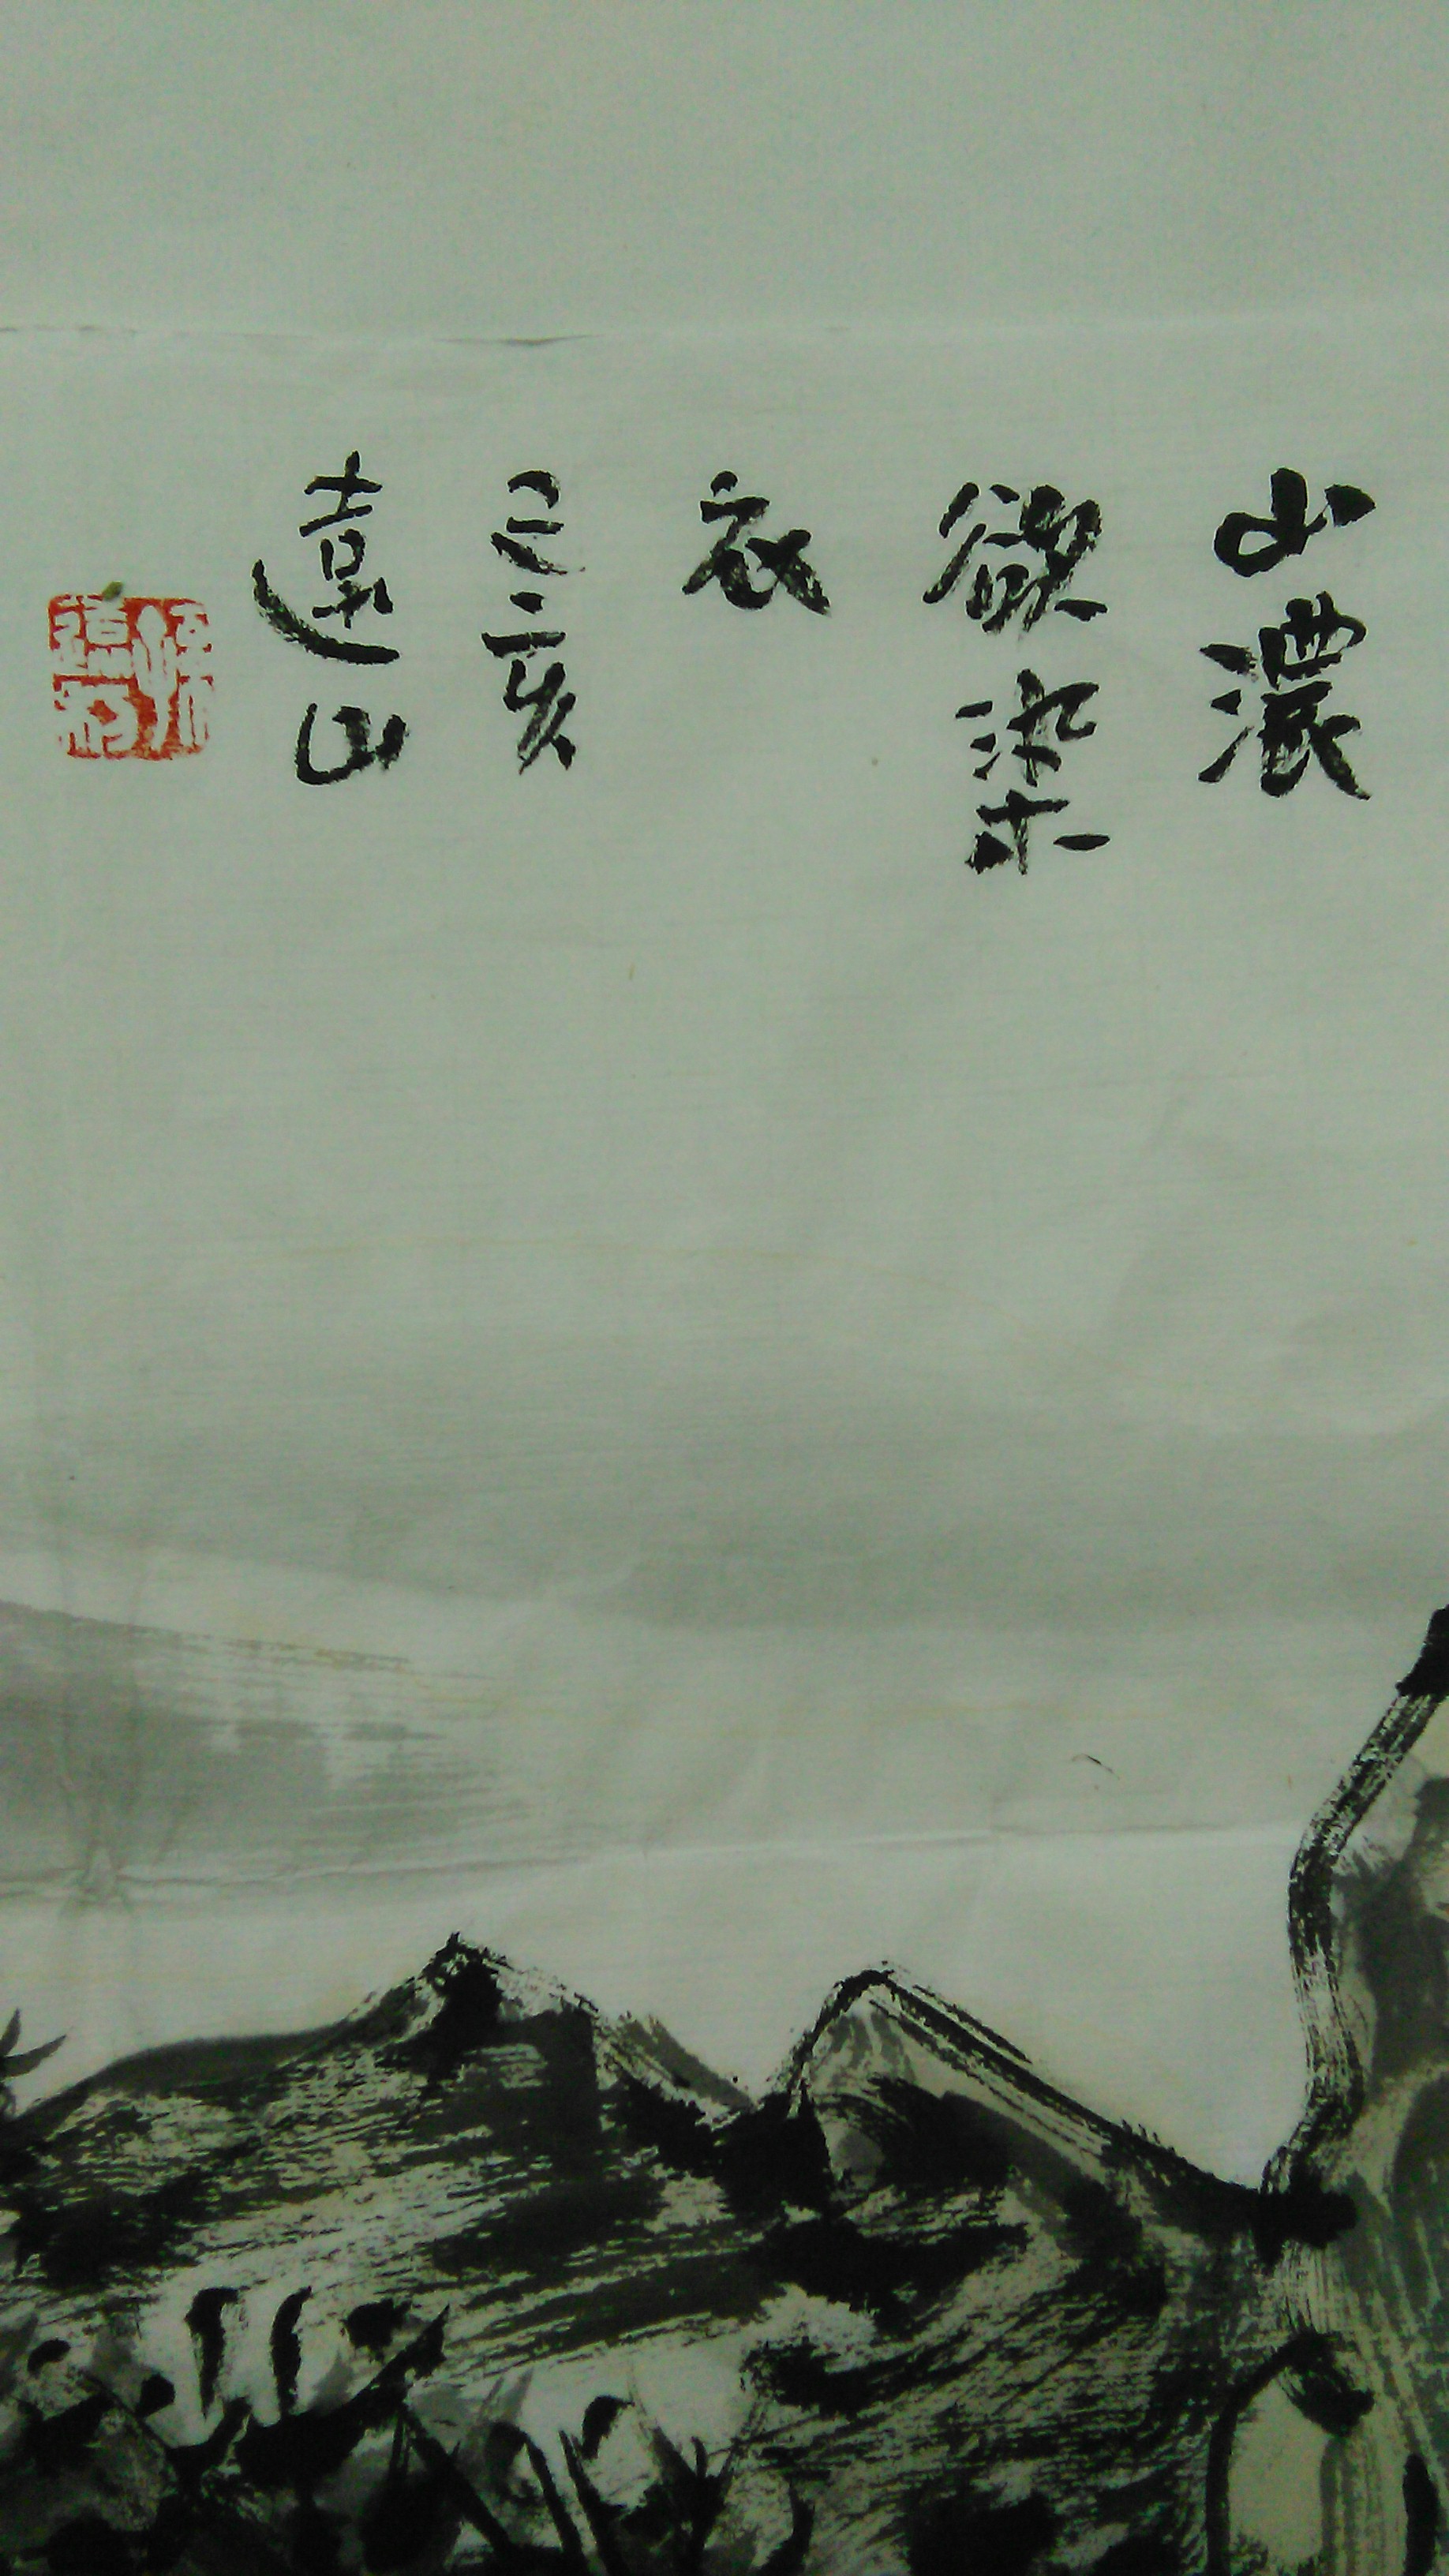 山濃
欲染
衣
己亥
遠山